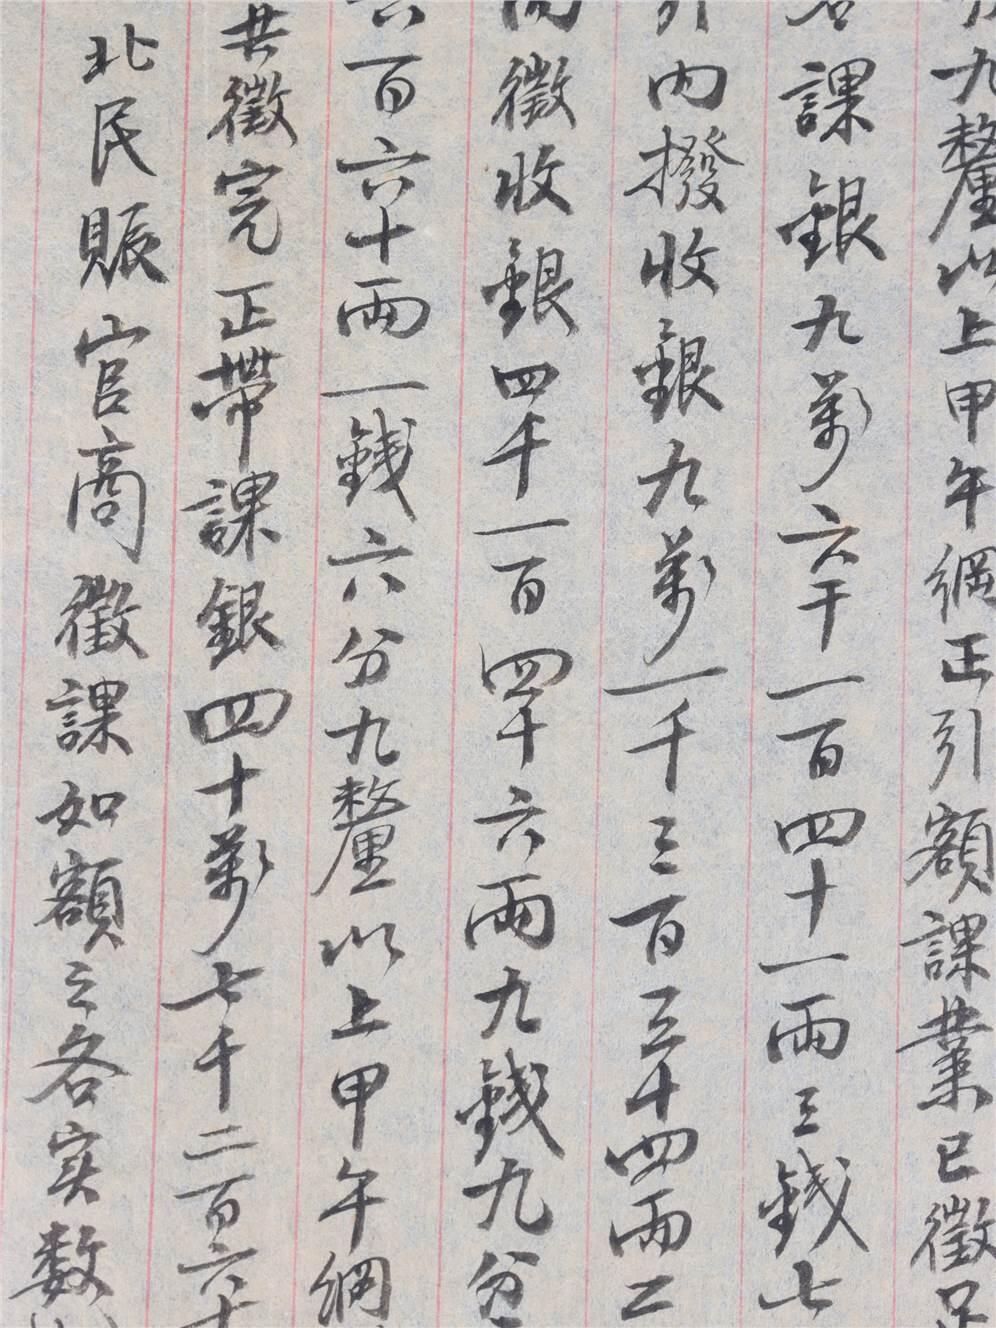 九釐以上甲午綱正引額課業已徵足
課銀九萬六千一百四十一兩三錢七
引內撥收銀九萬一千三百三十四兩二
徵收銀四千一百四十六兩九錢九分
六百六十兩一錢六分九釐以上甲午綱
共徵完正帶課銀四十萬七千二百六十
北民賑官商徵課如額之各实数